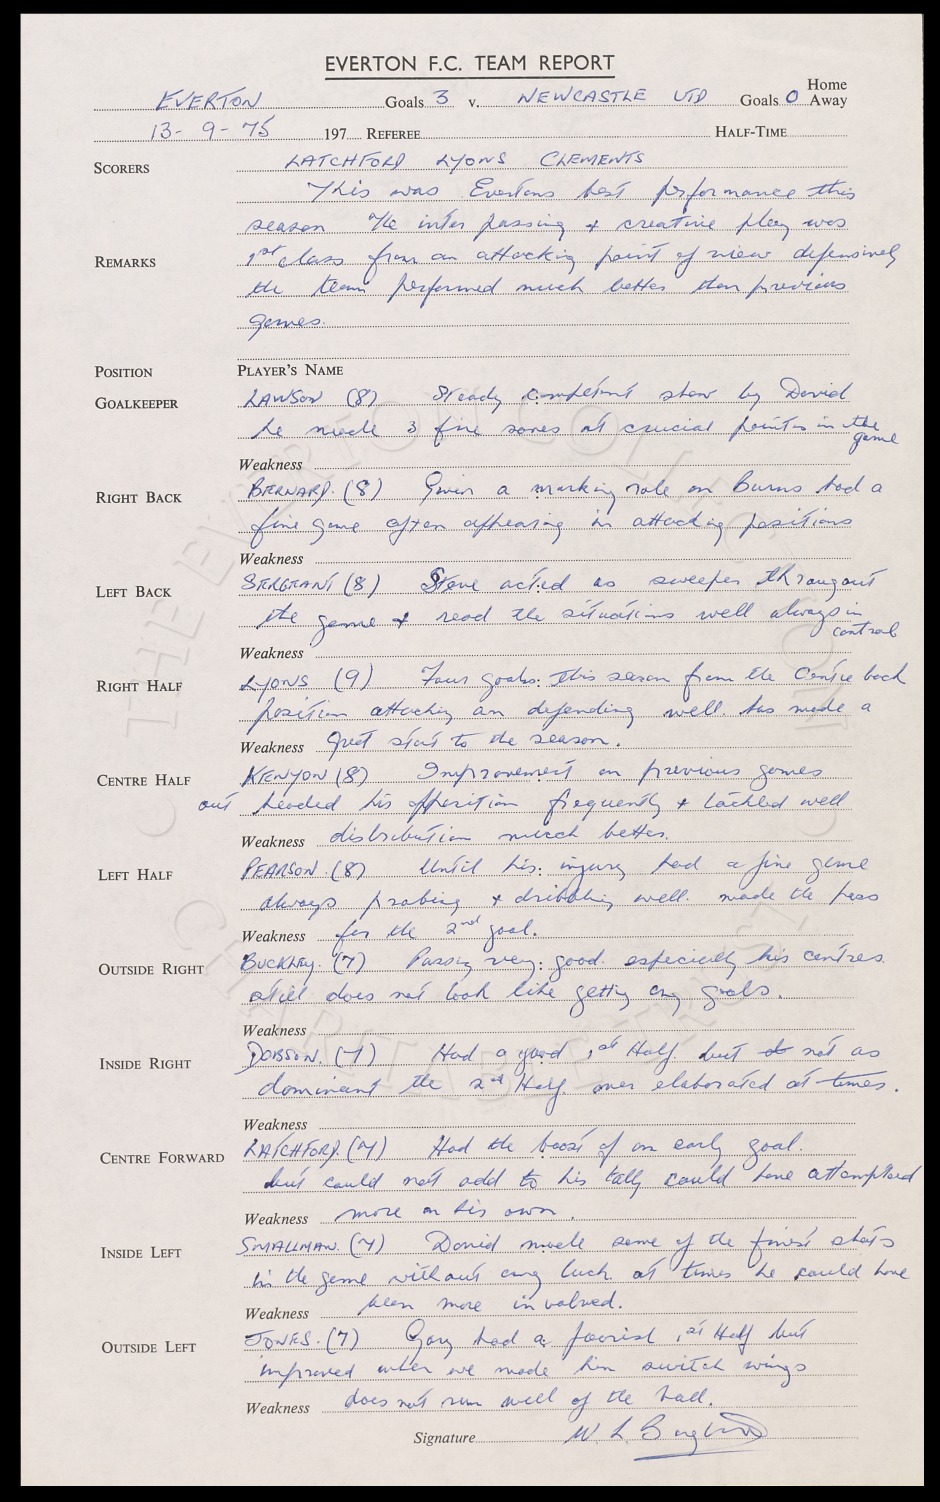 EVERTON F.C. TEAM REPORT
Home
EVERTON Goals 3 v. NEWCASTLE UTD Goals 0 Away
13-9-75 197 REFEREE HALF-TIME
SCORERS LATCHFORD LYONS CLEMENTS
This was Evertons best performance this
season The inter passing & creative play was
REMARKS 1st class from an attacking point of view defensively
the team performed much better than previous
games.
POSITION PLAYER'S NAME
GOALKEEPER LAWSON (8) Steady competent show by David
he made 3 fine saves at crucial points in the
game
Weakness
RIGHT BACK BERNARD. (8) Given a marking role on Burns had a
fine game often appearing in attacking positions
Weakness
LEFT BACK SERGEANT (8) Steve acted as sweeper througout
the game & read the situations well always in
control
Weakness
RIGHT HALF LYONS (9) Four goals. this season from the Centre back
position attacking an defending well. has made a
Weakness great start to the season.
CENTRE HALF KENYON (8) Improvement on previous games
out headed his opposition frequently & tackled well
Weakness distribution much better.
LEFT HALF PEARSON. (8) Until his injury had a fine game
always probing & dribbling well. made the pass
Weakness for the 2nd goal.
OUTSIDE RIGHT BUCKLEY. (7) Passing very good. especially his centres.
still does not look like getting any goals.
Weakness
INSIDE RIGHT DOBSON. (7) Had a good 1st Half. but not as
dominant the 2nd Half. over elaborated at times.
Weakness
CENTRE FORWARD LATCHFORD. (7) Had the boost of an early goal.
but could not add to his tally could have attempted
Weakness more on his own.
INSIDE LEFT SMALLMAN. (7) David made some of the finest shots
in the game without any luck at times he could have
Weakness been more involved.
OUTSIDE LEFT JONES. (7) Gary had a 1st Half but
improved when we made him switch wings
Weakness does not run well of the ball.
Signature W L
THE EVERTON COLLECTION
CHARITABLE TRUST